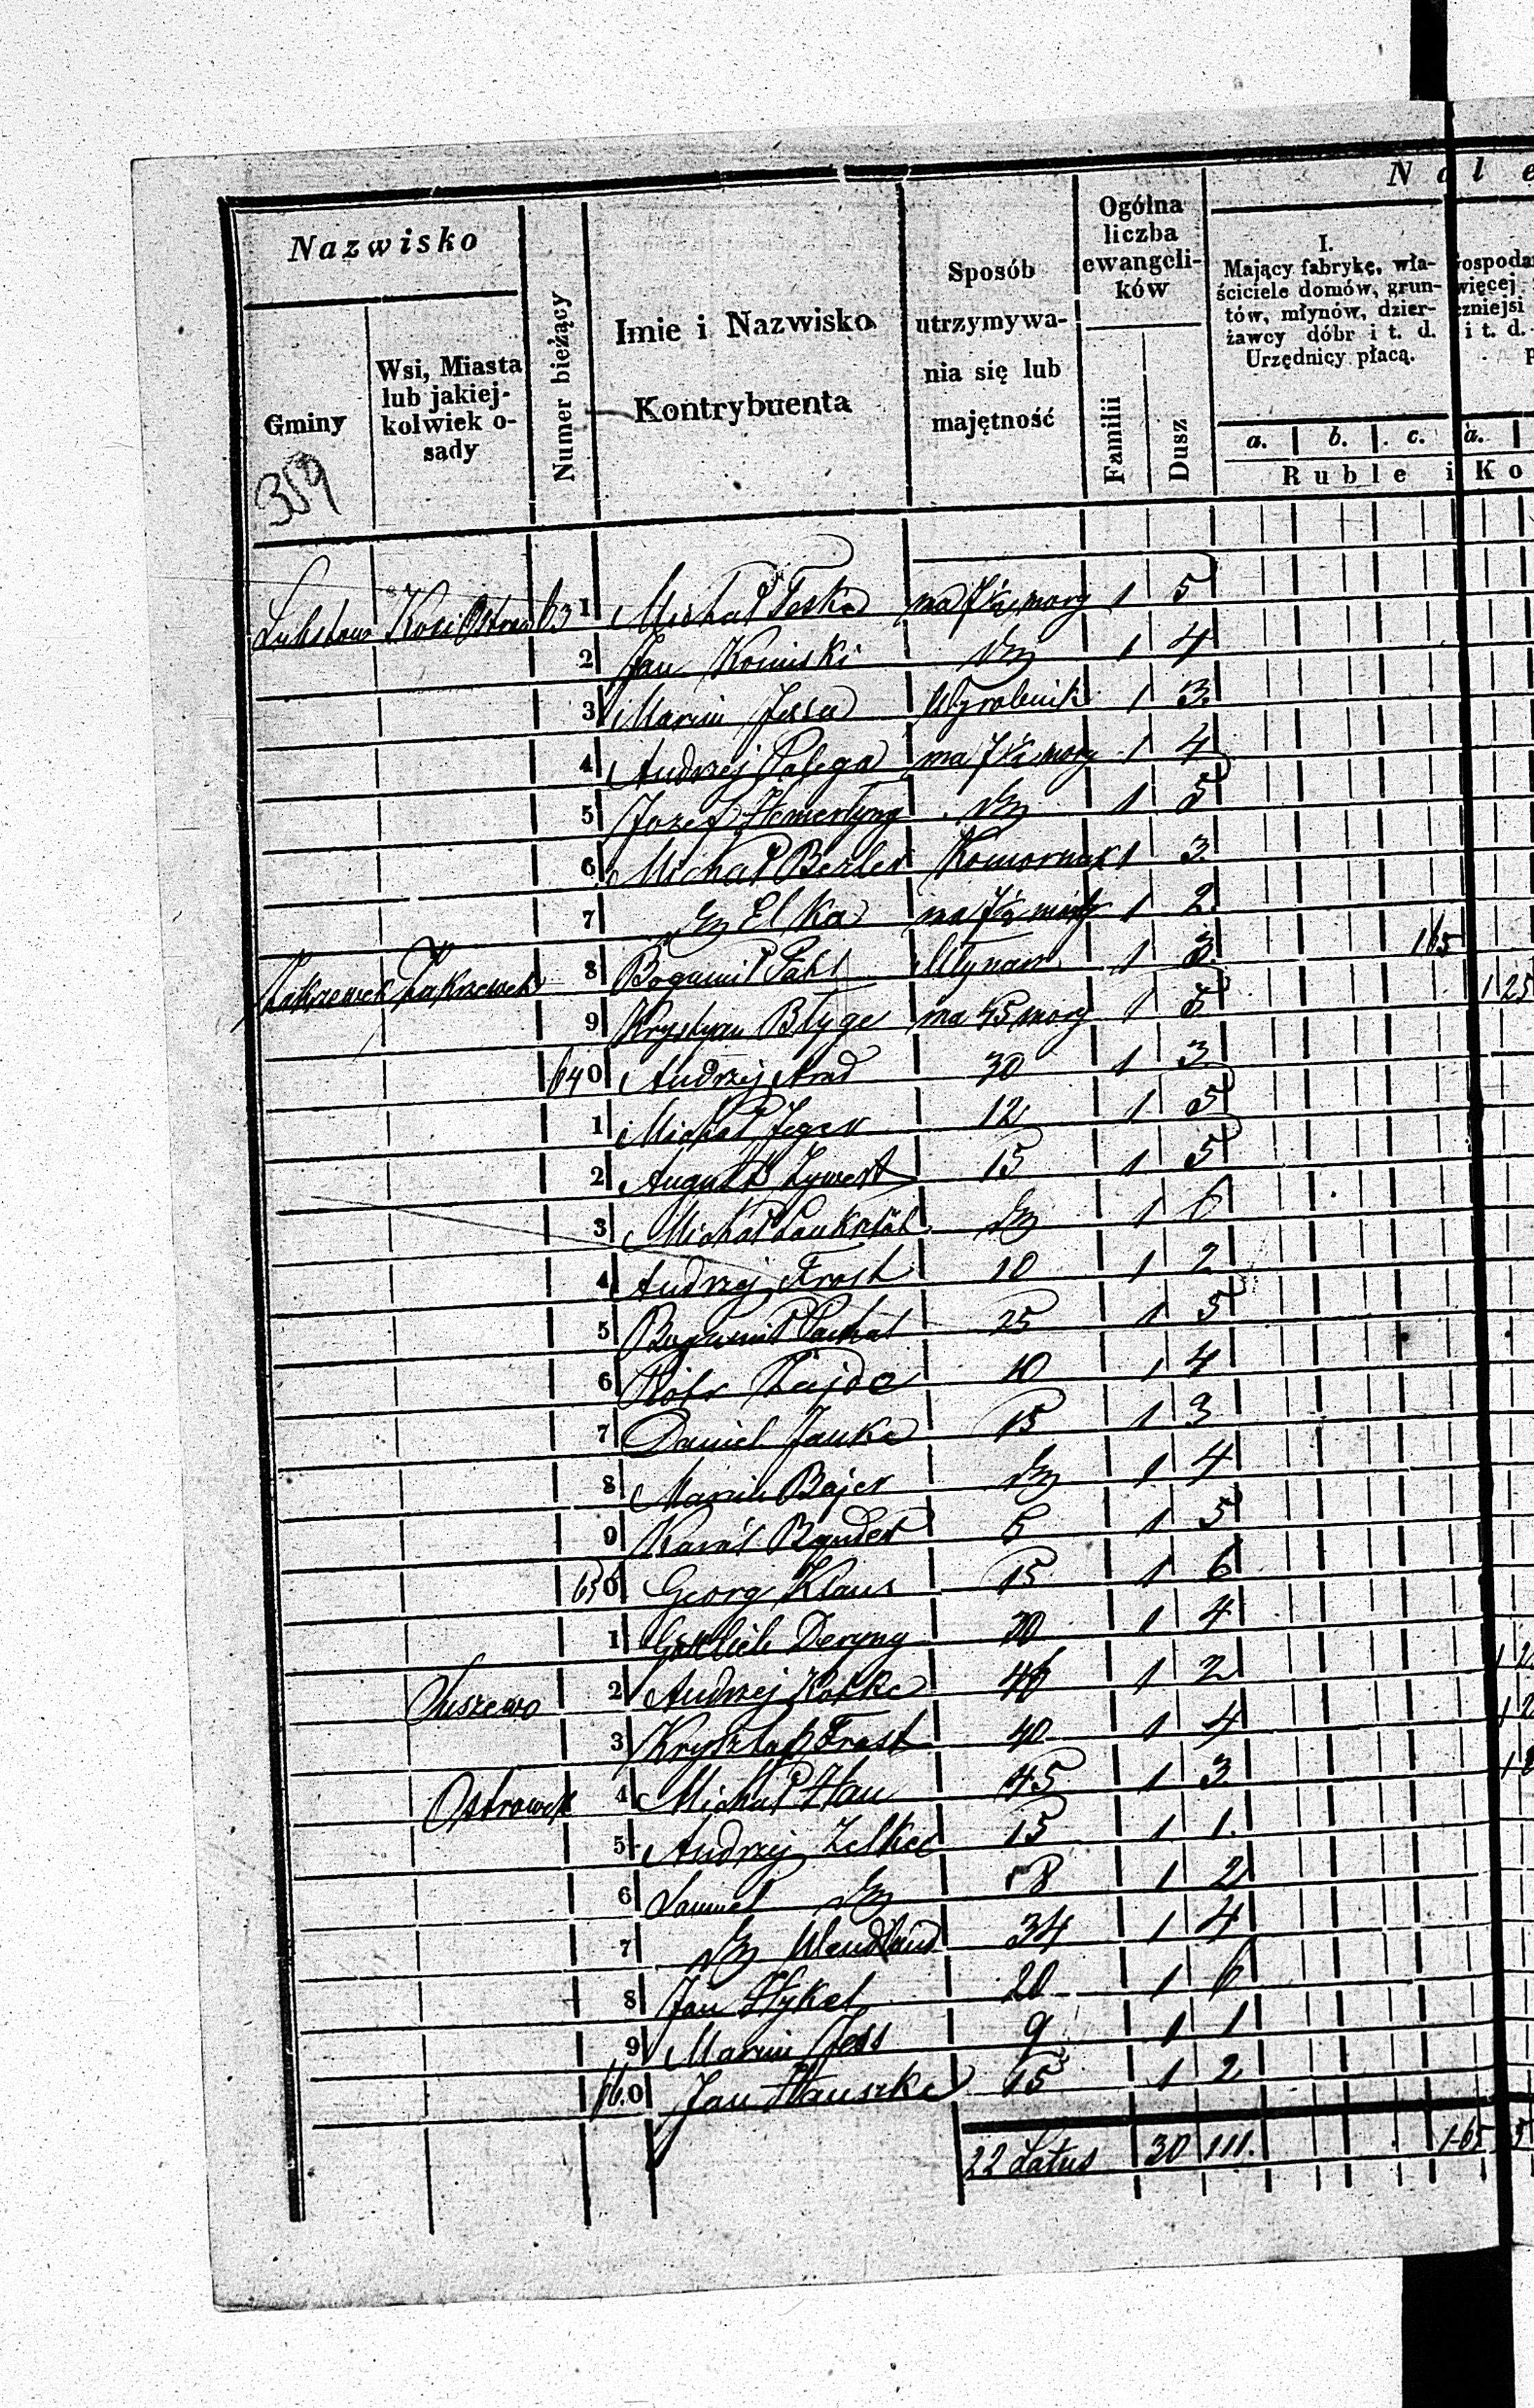 Nale
Nazwisko
Gminy
Wsi, Miasta
lub jakiej-
kolwiek o-
sady
Numer bieżący
Imie i Nazwisko
Kontrybuenta
Sposób
utrzymywa-
nia się lub
majętność
Ogólna
liczba
ewangeli-
ków
Familii
Dusz
I.
Mający fabrykę, wła-
ściciele domów, grun-
tów, młynów, dzier-
żawcy dóbr i t. d.
Urzędnicy płacą.
a. b. c. a.
Ruble i Ko
359
631 Michał Teska ma 7½ morg 1 5
2 Jan Koninski 1 4
3 Marcin Jessa Wyrobnik 1 3.
4 Andrzej Palega ma 7½ morg 1 4
5 Jozef Hemerlyng 1 5
6 Michał Bezler Komornik 1 3.
7 Elka ma 7½ morg 1 2.
Zakrzewek Zakrzewek 8 Bogumił Pahl Młynarz 1 3. 1 65
9 Krystyan Blyge ma 45 morg 1 5 1 25
640 Andrzej Arad 30 1 3
1 Michał Jeger 12 1 5
2 August Zywert 15 1 5
3 Michał 1 6
4 Andrzej Frost 10 1 2
5 Bogumił 25 1 5
6 Piotr Zajda 10 1 4
7 Daniel Janke 15 1 3
8 Marcin Bajer 1 4
9 Karól 1 5
650 Georg Klaus 15 1 6
1 Gottlieb Deryng 20 1 4
2 Andrzej 1 2
3 Frost 40 1 4
Ostrowek 4 Michał Hau 45 1 3.
5 Andrzej Zelke 15 1 1.
6 Samuel 8 1 2
7 Wendland 34 1 4
8 Jan Hykel 20 1 6
9 Marcin Jess 9 1 1
660 Jan Hauszke 15 1 2
22 Latus 30 111. 1 65